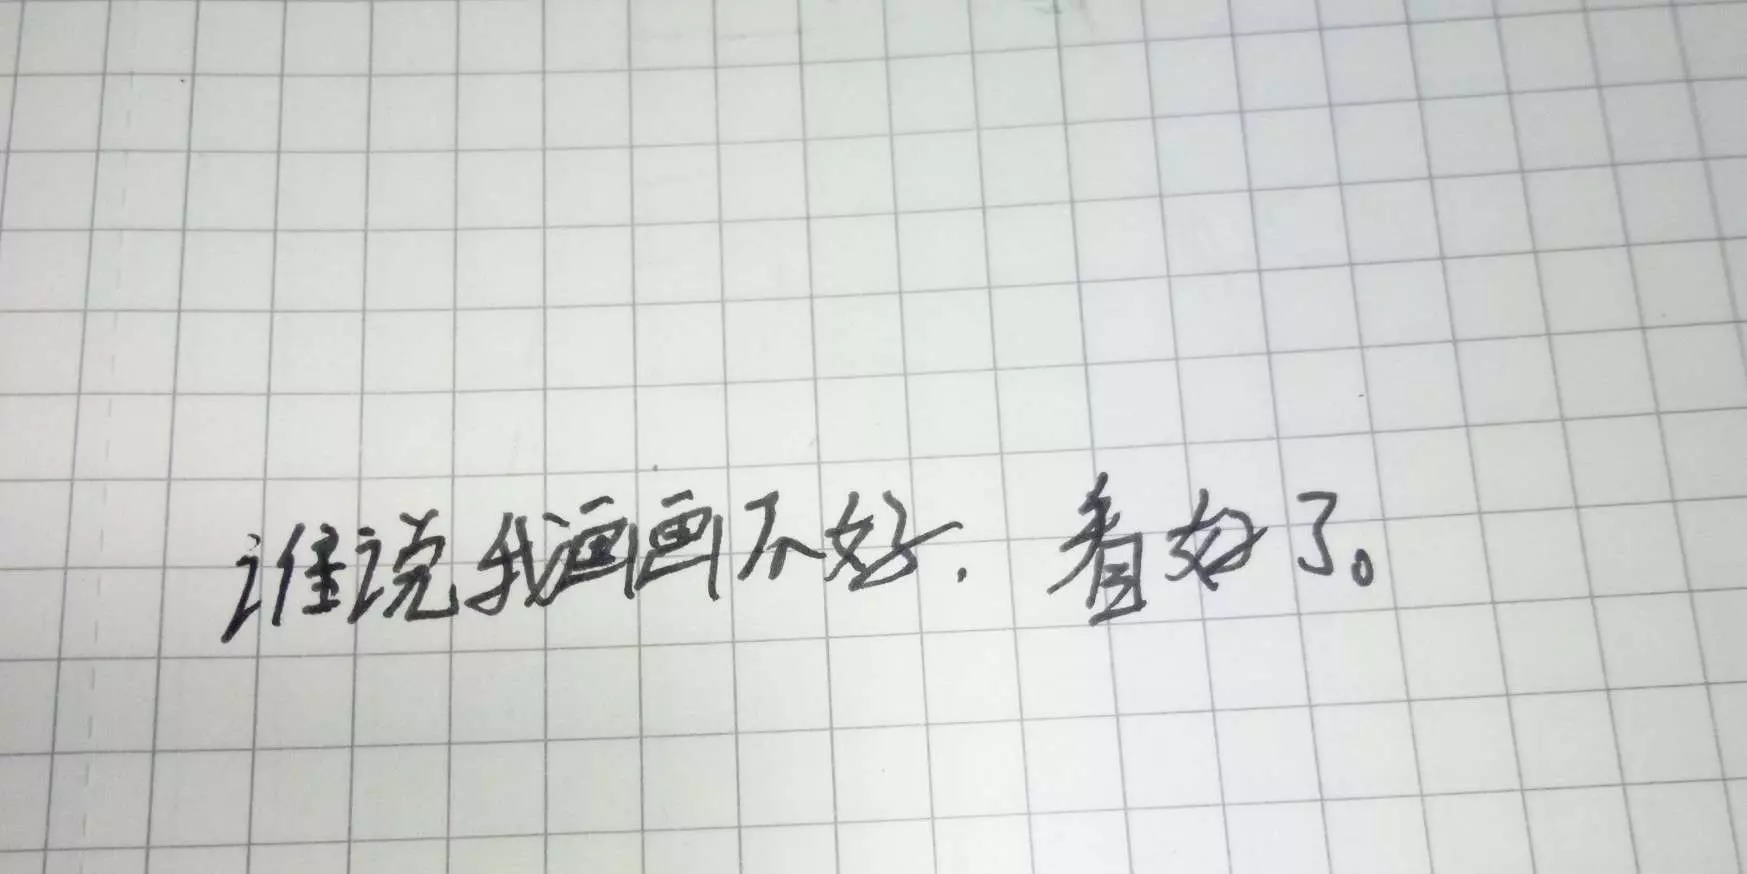 谁说我画画不好. 看好了。